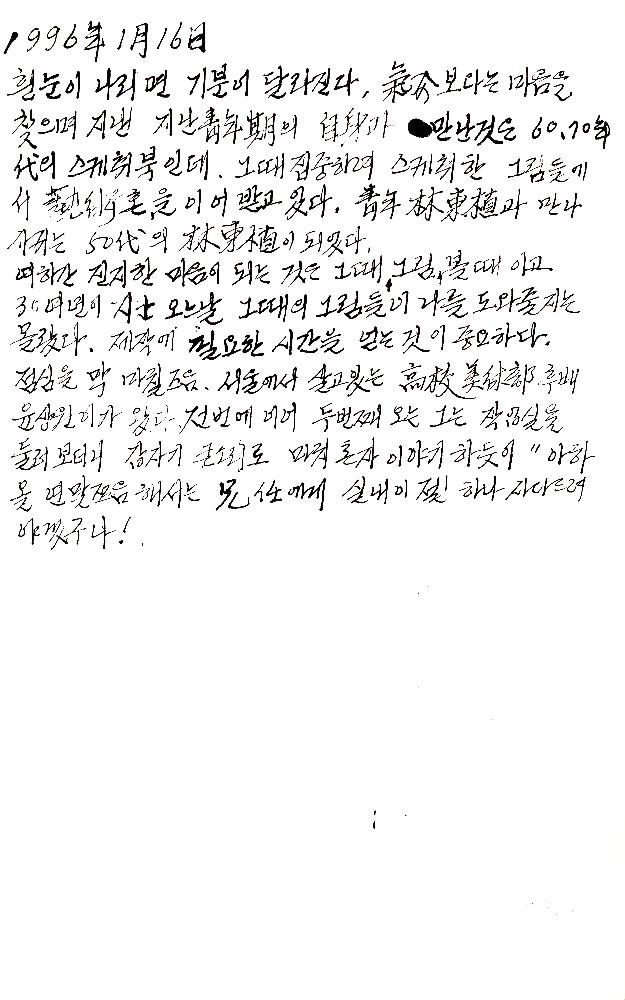 1996年 1月 16日
흰눈이 나리면 기분이 달라진다, 氣分보다는 마음을
찾으며 지낸 지난 靑年期의 自身과 만난것은 60,70年
代의 스케취북인데. 그때 집중하며 스케취한 그림들에
서 藝術魂을 이어 받고 있다. 靑年 林東植과 만나
사귀는 50代의 林東植이 되였다.
여하간 진지한 마음이 되는 것은 그때, 그림, 볼때 이고
30여년이 오늘날 그때의 그림들이 나를 도와줄지는
몰랐다. 제작에 필요한 시간을 얻는것이 중요하다.
점심을 막 마칠즈음. 서울에서 살고있는 高校 美術部 후배
윤상원이가 왔다. 전번에 이어 두번째 오는 그는 작업실을
둘러보더니 갑자기 큰소리로 마치 혼자 이야기 하듯이 "아하
올 연말즈음 해서는 兄任에게 실내이젤 하나 사다드려
야겠구나!